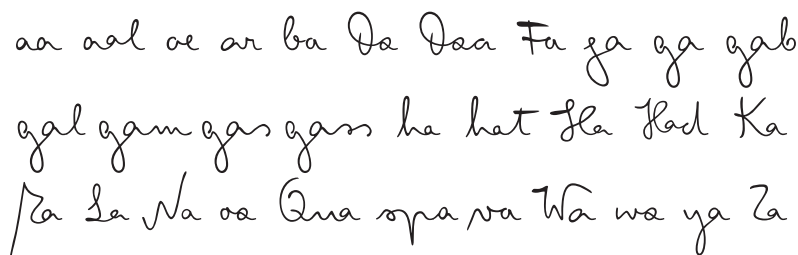 aa aal ae ar ba Da Daa Fa ga ga gab
gal gam gas gass ha hat Ha Had Ka
La Na oa Qua spa va Wa wa ya Za